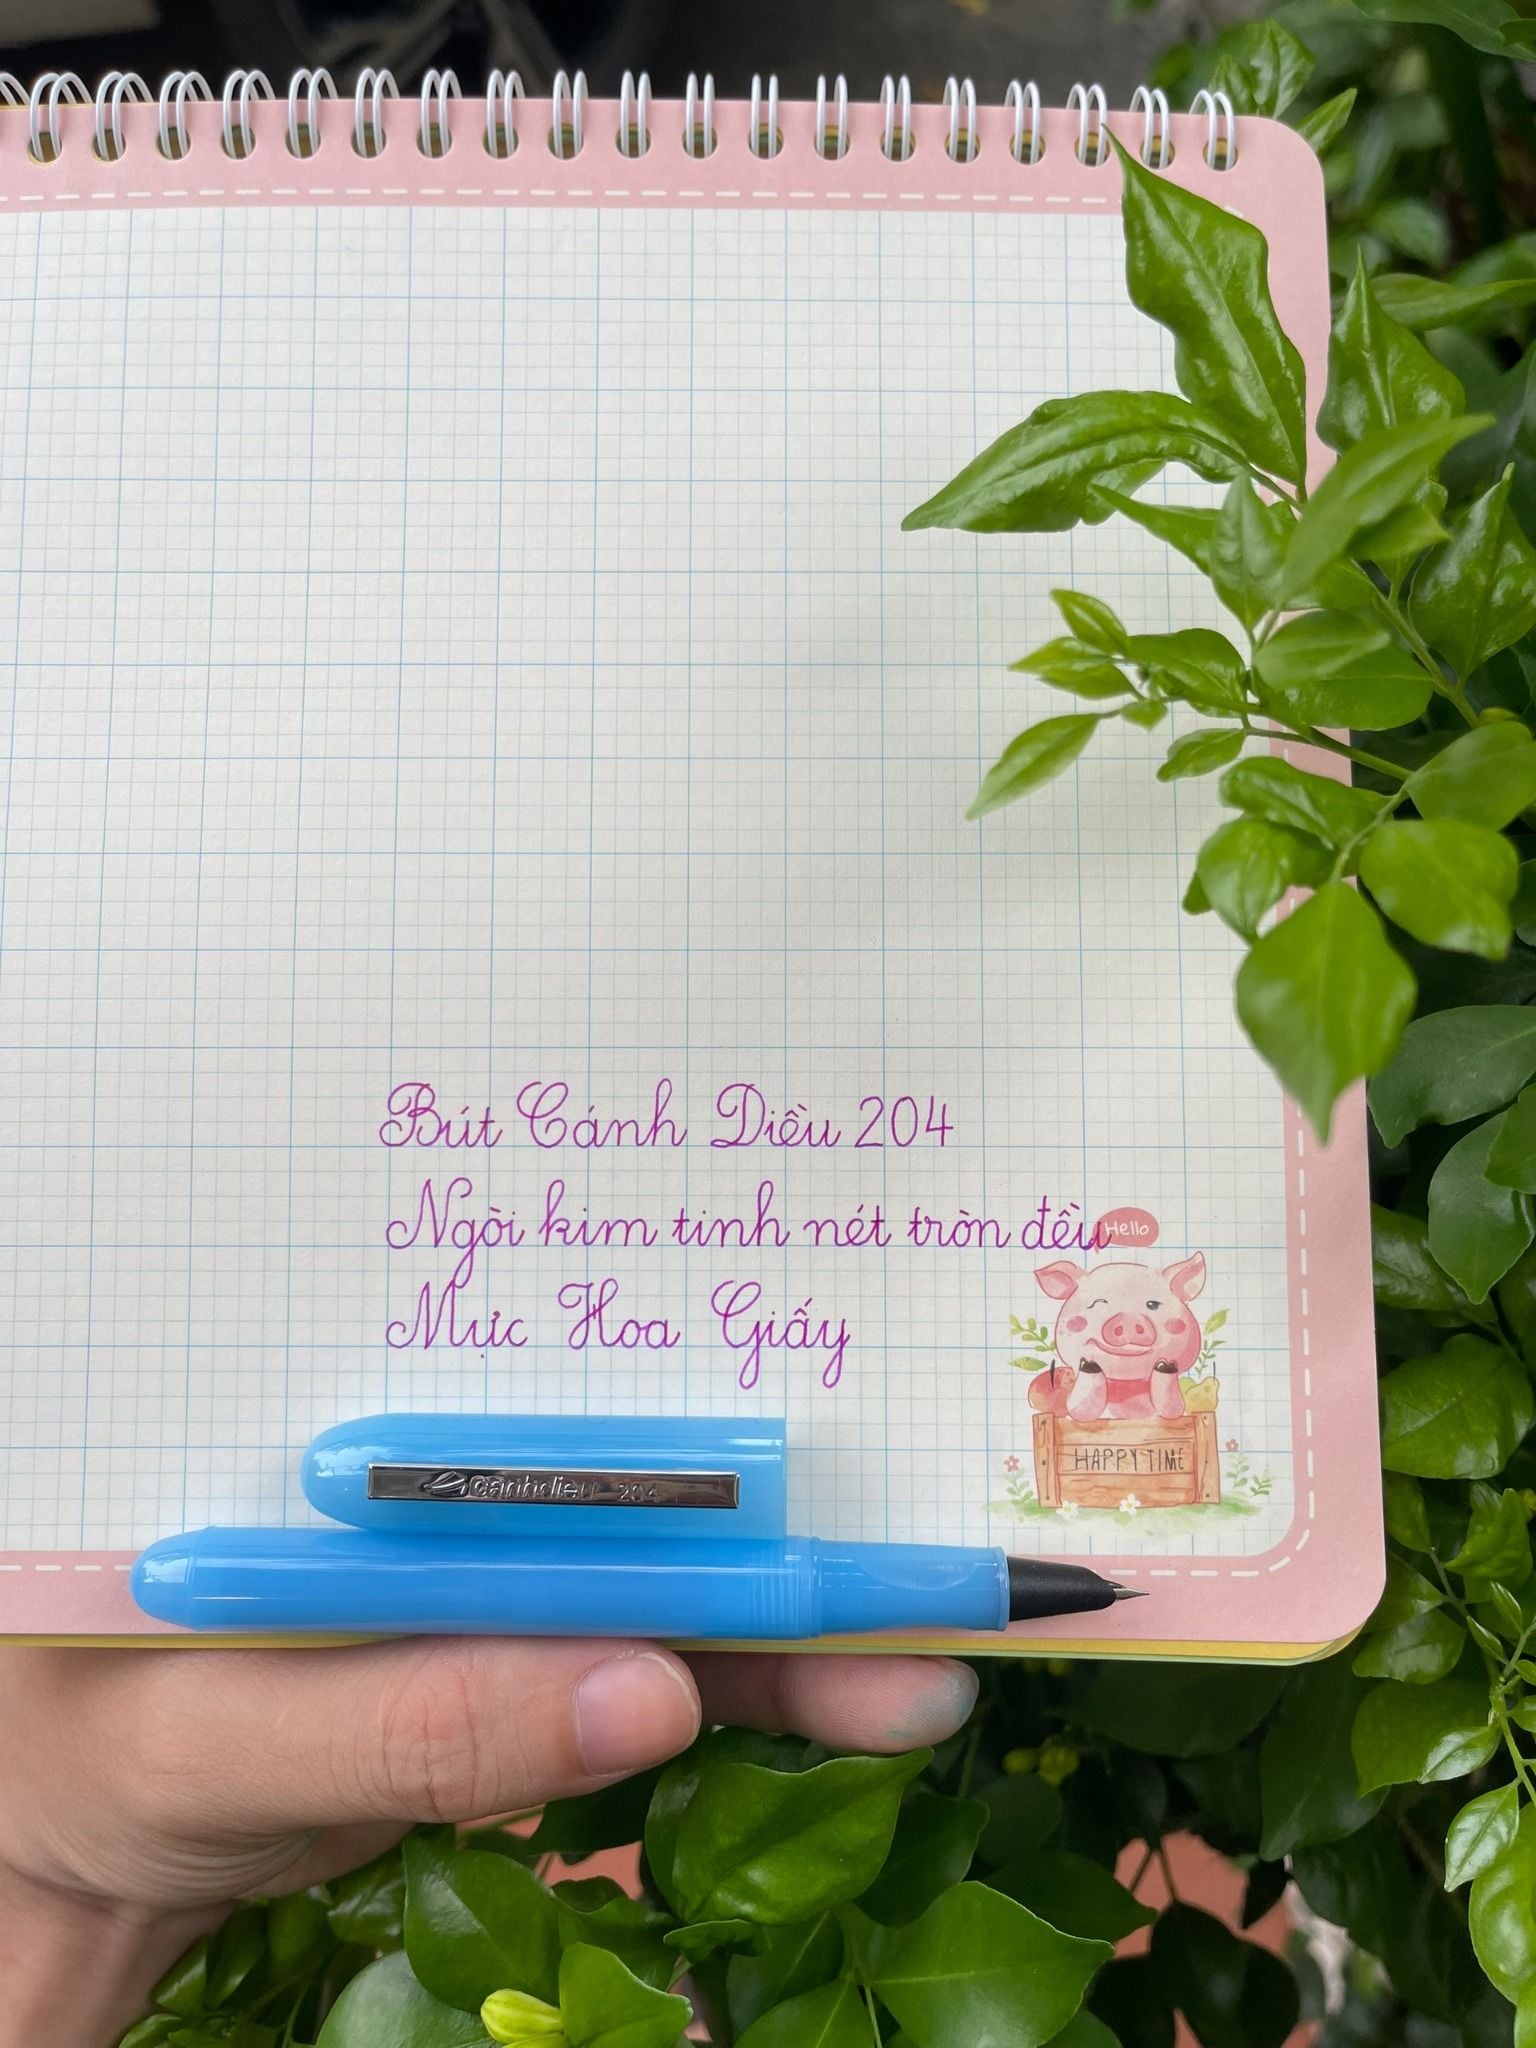 Bút Cánh Diều 204
Ngòi kim tinh nét tròn đều
Hello
Mực Hoa Giấy
HAPPY TIME
canhdieu 204